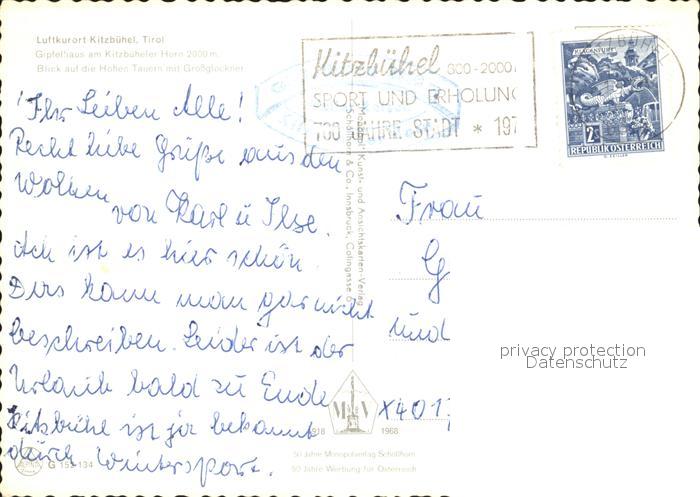 Luftkurort Kitzbühel, Tirol
Gipfelhaus am Kitzbüheler Horn 2000 m,
Blick auf die Hohen Tauern mit Großglockner
Kitzbühel 800-2000
SPORT UND ERHOLUNG
700 JAHRE STADT * 197
2
REPUBLIK ÖSTERREICH
Ihr Lieben Alle!
Recht liebe Grüße aus den
Wolken von Karl u Ilse.
Ach ist es hier schön.
Das kann man gar nicht
beschreiben. Leider ist der
Urlaub bald zu Ende
Kitzbühel ist ja bekannt
durch Wintersport.
Frau
G
und
X401
privacy protection
Datenschutz
Kunst- und Ansichtskarten-Verlag
Schöllhorn & Co., Innsbruck, Colingasse
M V
1918 1968
50 Jahre Monopolverlag Schöllhorn
50 Jahre Werbung für Österreich
G 152 134